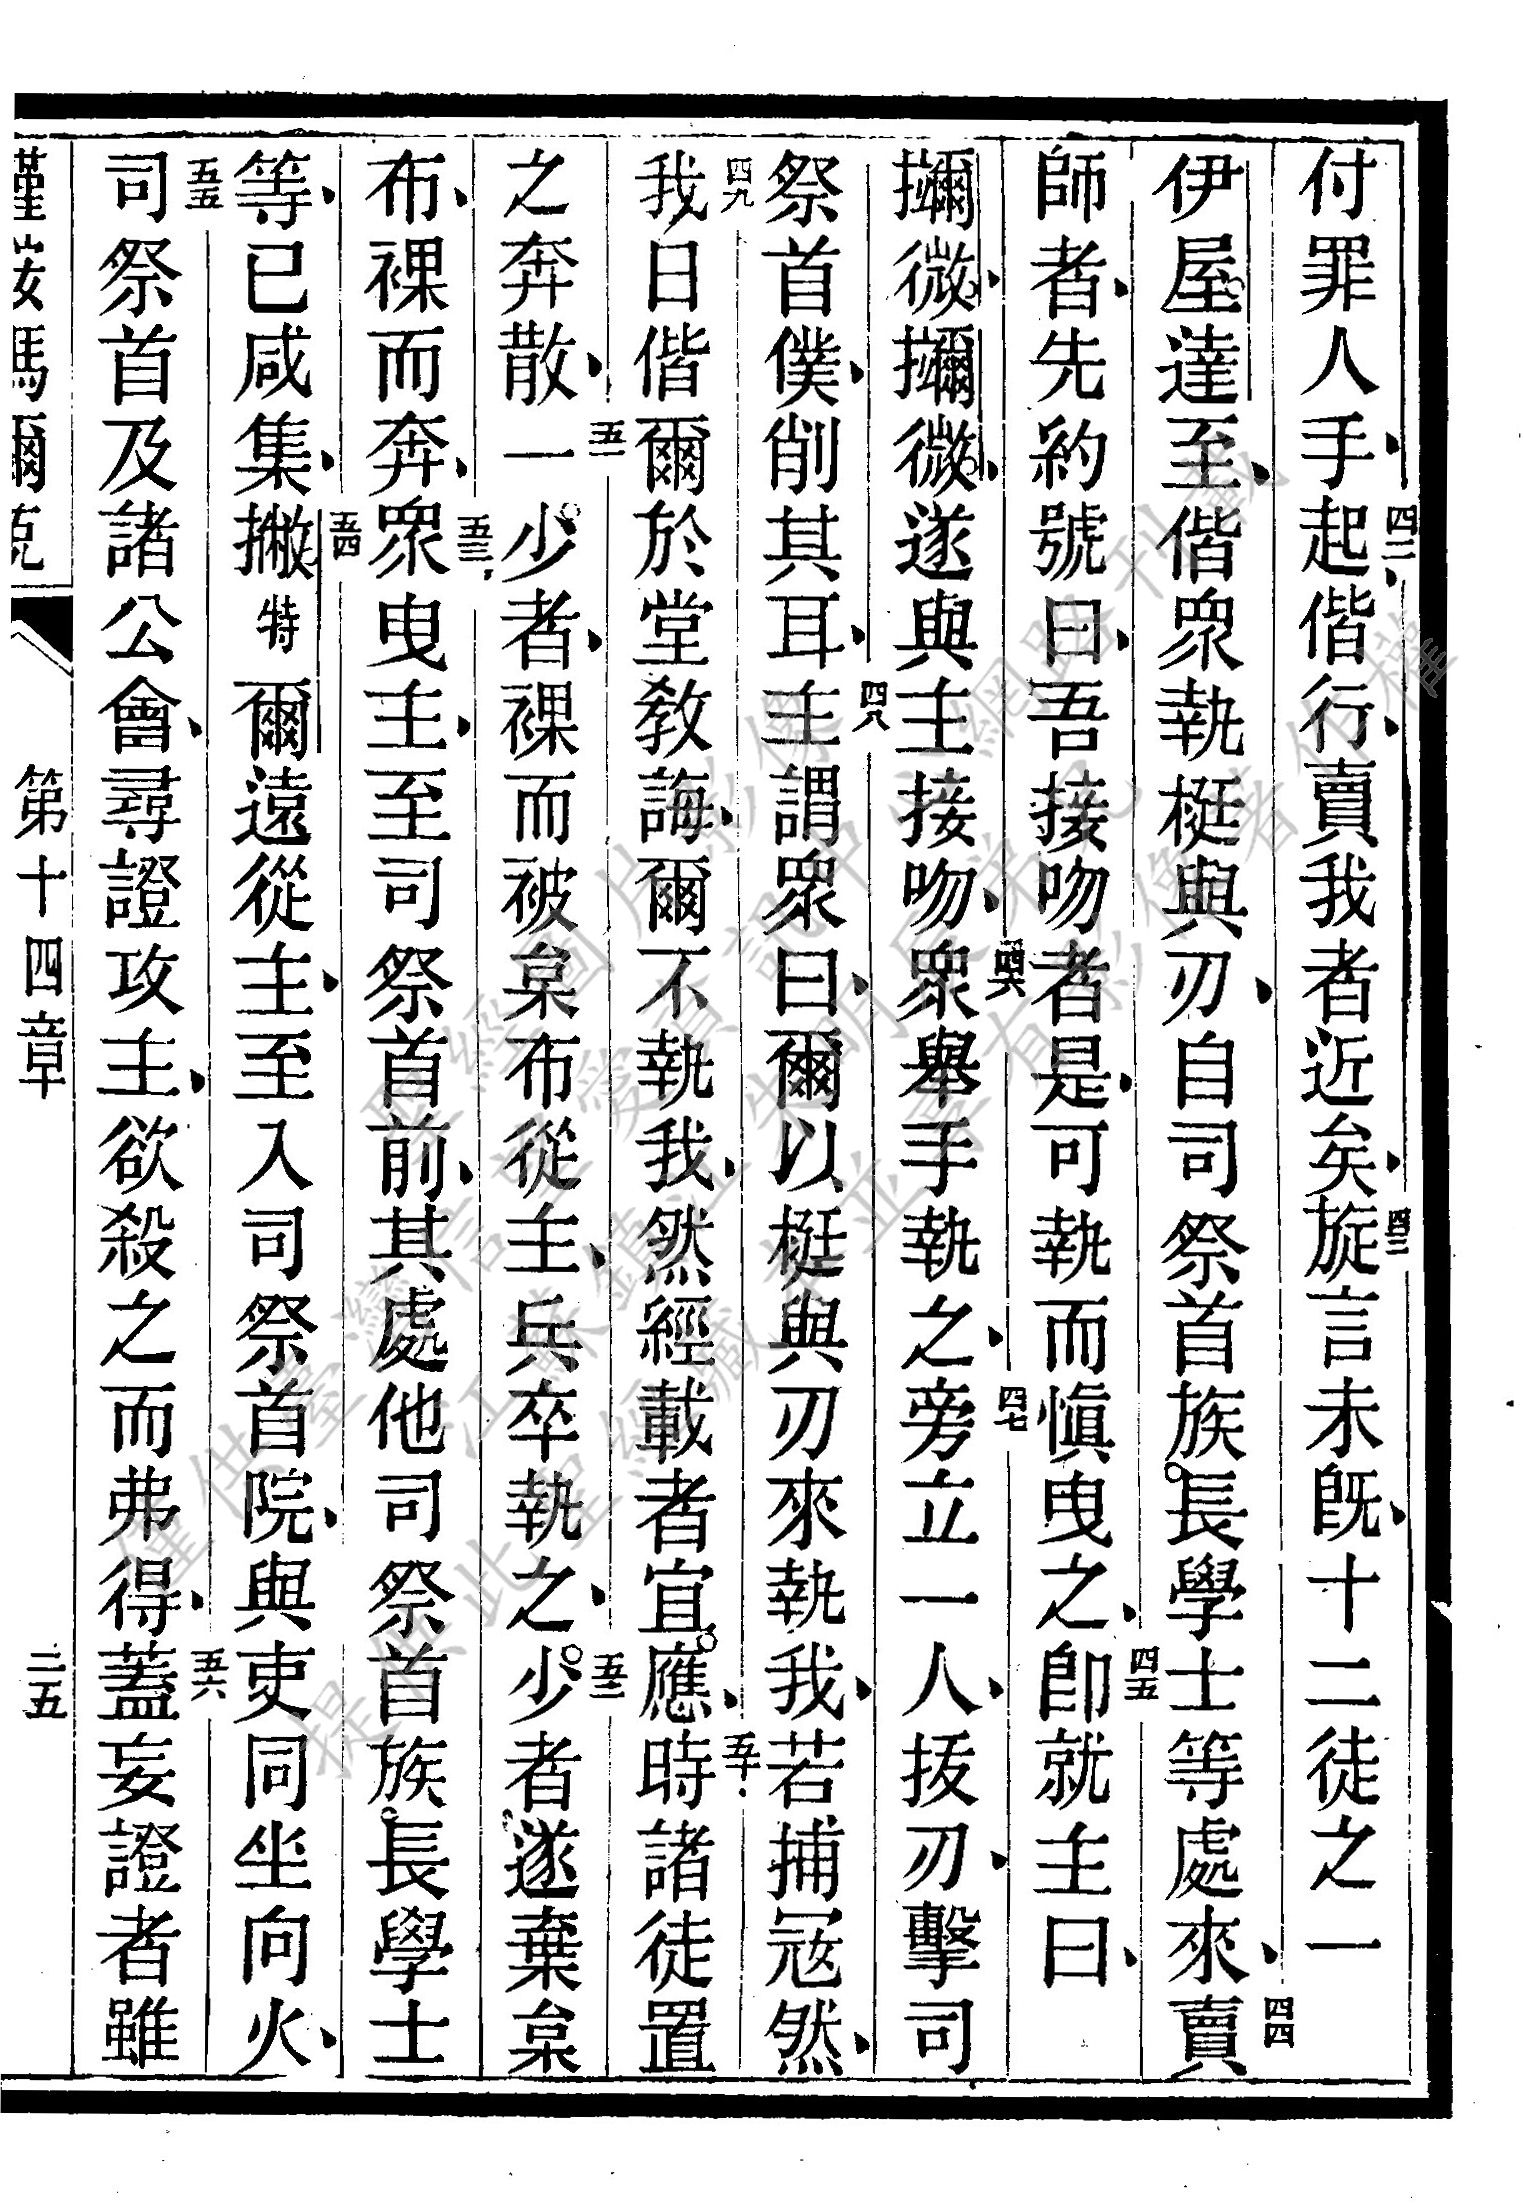 付罪人手、四二起偕行、賣我者近矣、四三旋言未旣、十二徒之一
伊屋達至、偕眾執梃與刃、自司祭首族長學士等處來、四四賣
師者、先約號曰、吾接吻者是、可執而愼曳之、四五卽就主曰、
擟微、擟微、遂與主接吻、四六眾舉手執之、四七旁立一人、拔刃、擊司
祭首僕、削其耳、四八主謂眾曰、爾以梃與刃來執我、若捕寇然、
四九我日偕爾於堂敎誨、爾不執我、然經載者宜應、五十時諸徒置
之奔散、五一一少者、裸而被枲布從主、兵卒執之、五二少者遂棄枲
布、裸而奔、五三眾曳主、至司祭首前、其處他司祭首族長學士
等、已咸集、五四撇特爾遠從主、至入司祭首院、與吏同坐向火、
五五司祭首及諸公會、尋證攻主、欲殺之而弗得、五六蓋妄證者雖
瑾安馬爾克 第十四章 二五